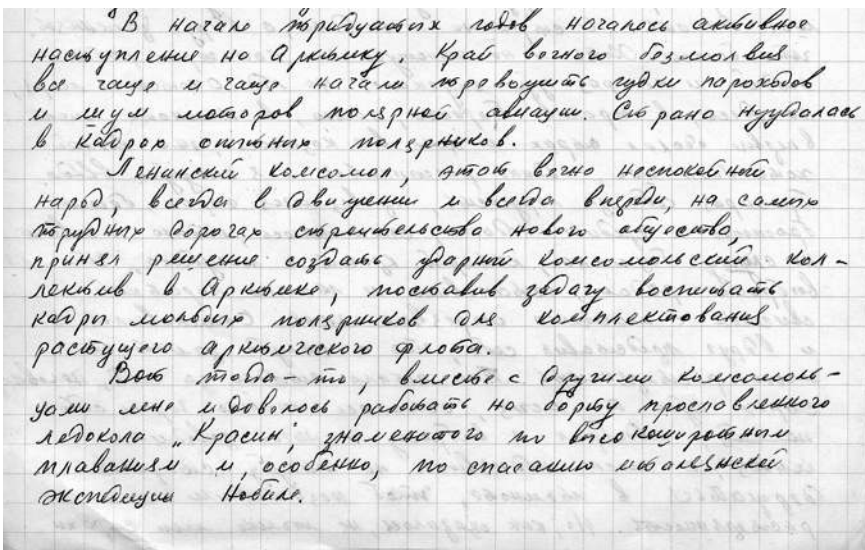 В начале тридцатых годов началось активное
наступление на Арктику. Край вечного безмолвия
все чаще и чаще начали тревожить гудки пароходов
и шум моторов полярной авиации. Страна нуждалась
в кадрах опытных полярников.
Ленинский комсомол, этот вечно неспокойный
народ, всегда в движении и всегда впереди, на самых
трудных дорогах строительства нового общества,
принял решение создать ударный комсомольский кол-
лектив в Арктике, поставив задачу воспитать
кадры молодых полярников для комплектования
растущего арктического флота.
Вот тогда-то, вместе с другими комсомоль-
цами мне и довелось работать на борту прославленного
ледокола „Красин", знаменитого по высокоширотным
плаваниям и, особенно, по спасанию итальянской
экспедиции Нобиле.